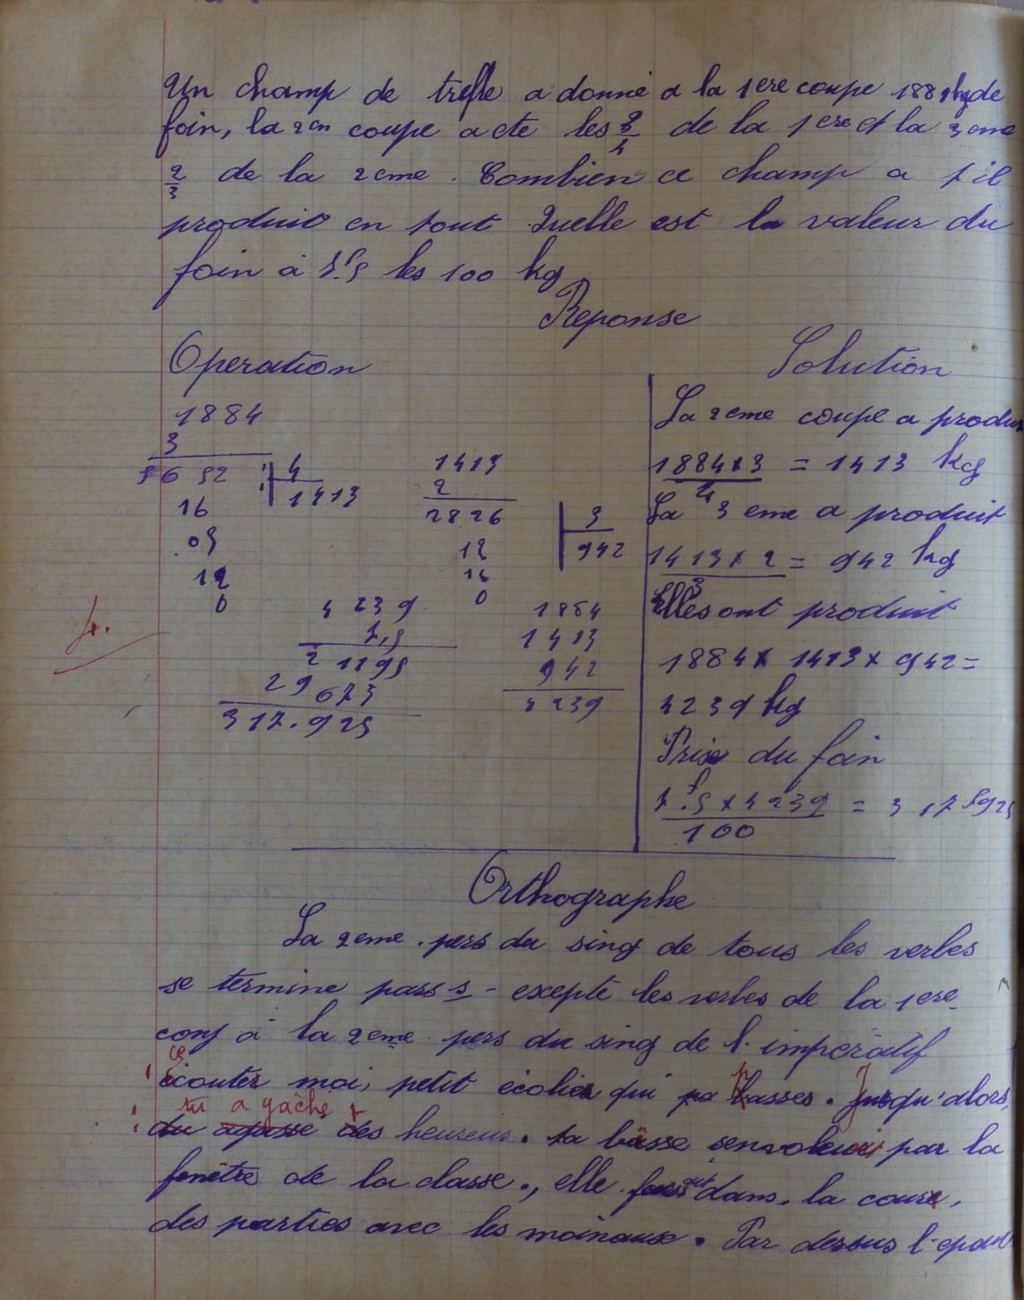 Un champ de trefle a donné a la 1ere coupe 1884 kg de
foin, la 2en coupe a ete les 3/4 de la 1ere et la 3eme
2/3 de la 2eme. Combien ce champ a t il
produit en tout Quelle est la valeur du
foin à 7f,5 les 100 kg
Reponse
Operation
1884
3
5652 4
16 1413
05
12
0
1413
2
2826 3
12 942
16
0
4239
7,5
21195
29673
317.925
1884
1413
942
4239
Solution
La 2eme coupe a produit
1884x3 = 1413 kg
4
La 3eme a produit
1413x2 = 942 kg
3
Elles ont produit
1884x 1413x 942=
4239 kg
Prise du foin
7f.5 x 4239 = 317f925
100
Orthographe
La 2eme. pers du sing de tous les verbes
se termine pars s - excepte les verbes de la 1ere
conj à la 2eme pers du sing de l'imperatif
écouter moi, petit écolier qui pa basses. Jusqu'alors,
tu a gâché
des heureus. ta
par la
fenêtre de la classe., elle dans. la cour,
des parties avec les moinaux. Par dessus l'epaul